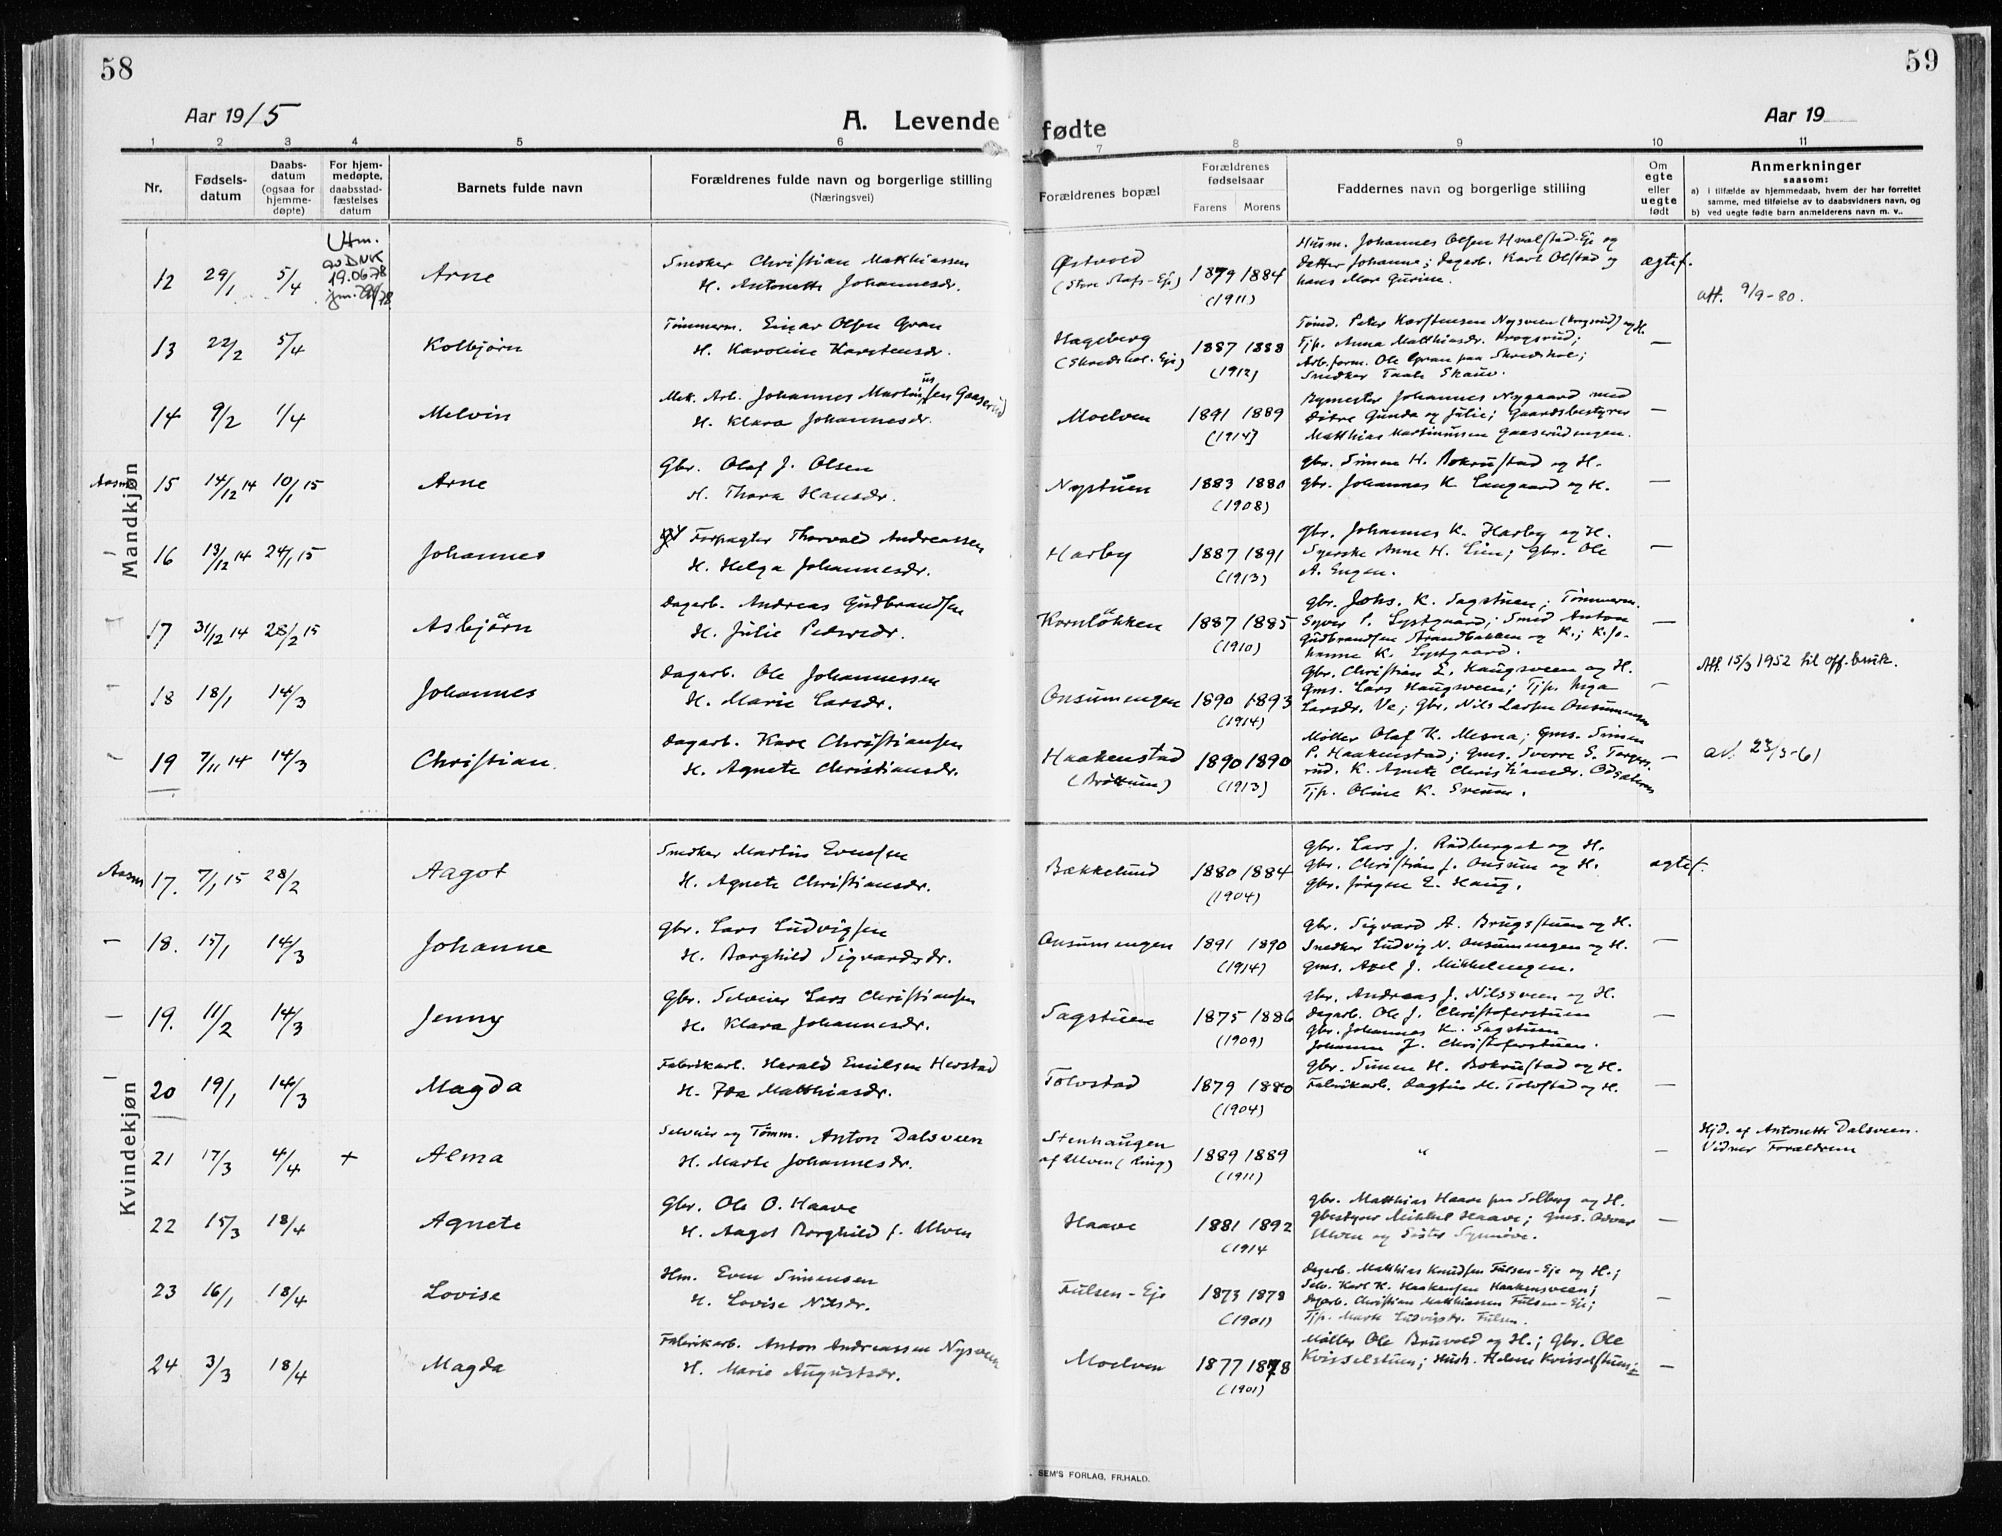 58
59
Aar 1915
A. Levende fødte
Aar 19
1 2 3 4 5 6 7 8 9 10 11
Nr.
Fødsels-
datum
Daabs-
datum
(ogsaa for
hjemme-
døpte)
For hjem-
medøpte,
daabsstad-
fæstelses
datum
Barnets fulde navn
Forældrenes fulde navn og borgerlige stilling
(Næringsvei)
Forældrenes bopæl
Forældrenes
fødselsaar
Farens Morens
Faddernes navn og borgerlige stilling
Om
egte
eller
uegte
født
Anmerkninger
saasom:
a) i tilfælde av hjemmedaab, hvem der har forrettet
samme, med tilføielse av to daabsvidners navn, og
b) ved uegte fødte barn anmelderens navn m. v..
Mandkjøn
Utm.
av DNK
19.06.78
12 29/1 5/4 Arne
Snedker Christian Matthiassen
H. Antonette Johannesdr.
Østvold
1879 1884
(1911)
Husm. Johannes Olsen Hvalstad-Eje og
datter Johanne; dagarb. Karl Olstad og
hans Mor Gurine.
ægtef.
att. 9/9-80.
13 22/2 5/4 Kolbjørn
Tømmerm. Einar Olsen Gran
H. Karoline Karstensdr.
Hageberg
(Skredshol. Eje)
1887 1888
(1912)
Tømd. Peter Karstensen Nysveen (Krogsrud) og H.
Tjp. Anna Matthiasdr. Krogsrud;
Arb.form. Ole Gran paa Skredshol;
Snedker Skaur.
—
14 9/2 1/4 Melvin
Mek. Arb. Johannes Martinussen Gaaserud
H. Klara Johannesdr.
Moelven
1891 1889
(1914)
Bymester Johannes Nygaard med
Døtre Gunda og Julie; Gaardsbestyrer
Matthias Martinussen Gaaserudengen.
—
15 14/12 14 10/1 15 Arne
Gbr. Olaf J. Olsen
H. Thora Hansdr.
Nystuen
1883 1880
(1908)
gbr. Simen H. Bokrustad og H.
gbr. Johannes K. Langaard og H.
—
16 13/12 14 24/1 15 Johannes
Forpagter Thorvald Andreassen
H. Helga Johannesdr.
Harby
1887 1891
(1913)
gbr. Johannes K. Harby og H.
Syerske Anne H. Lien; gbr. Ole
A. Engen.
—
17 31/12 14 28/2 15 Asbjørn
Dagarb. Andreas Gudbrandsen
H. Julie Pedersdr.
Kornløkken
1887 1885
(1910)
gbr. Johs. K. Sagstuen; Tømmerm.
Syver P. Lystgaard; Smed Anton
Gudbrandsen Strandbakken og K.; K. Jo-
hanne K. Lystgaard.
—
18 18/1 14/3 Johannes
Dagarb. Ole Johannessen
H. Marie Larsdr.
Onsumengen
1890 1893
(1914)
Gbr. Christian L. Haugsveen og H.
gms. Lars Haugsveen; Tjp. Inga
Larsdr. Ve; gbr. Nils Larsen Onsumengen
—
Att. 15/3 1952 til off. bruk.
19 7/11 14 14/3 Christian
Dagarb. Karl Christiansen
H. Agnete Christiansdr.
Haakenstad
(Brøttum)
1890 1890
(1913)
Møller Olaf K. Mesna; gms. Simen
P. Haakenstad; gms. Sverre S. Torgers-
rud. K. Agnete Christiansdr.
Tjp. Oline K. Sveum.
—
av. 23/3-61
Kvindekjøn
17. 7/1 15 28/2 Aagot
Snedker Martin Evensen
H. Agnete Christiansdr.
Bækkelund
1880 1884
(1904)
gbr. Lars J. Rudberget og H.
gbr. Christian J. Onsum og H.
gbr. Jørgen E. Haug.
ægtef.
— 18. 15/1 14/3 Johanne
gbr. Lars Ludvigsen
H. Borghild Sigvardsdr.
Onsumengen
1891 1890
(1914)
gbr. Sigvard A. Brugsstuen og H.
Snedker Ludvig N. Onsumengen og H.
gms. Axel J. Mikkelengen.
—
— 19. 11/2 14/3 Jenny
Gbr. Selveier Lars Christiansen
H. Klara Johannesdr.
Sagstuen
1875 1886
(1909)
gbr. Andreas J. Nilssveen og H.
dagarb. Ole J. Christoferstuen
gbr. Johannes K. Sagstuen
Johanne J. Christoferstuen.
—
20 19/1 14/3 Magda
Fabrikarb. Harald Emilsen Herstad
H. Ida Matthiasdr.
Tolvstad
1879 1880
(1904)
gbr. Simen H. Bokrustad og H.
Fabrikarb. Dagfin M. Tolvstad og H.
—
21 17/3 4/4 + Alma
Selveier og Tømm. Anton Dalsveen
H. Marte Johannesdr.
Stenhaugen
af Ulven (Ring)
1889 1889
(1911)
"
—
Hjd. af Antonette Dalsveen.
Vidner Forældrene
22 15/3 18/4 Agnete
Gbr. Ole O. Haave
H. Aagot Borghild f. Ulven
Haave
1881 1892
(1914
gbr. Matthias Haave paa Solberg og H.
gbestyrer Mikkel Haave; gms. Odvar
Ulven og Søster Synnøve.
—
23 16/1 18/4 Lovise
Hm. Even Simensen
H. Lovise Nilsdr.
Fulsen-Eje
1873 1878
(1901)
Dagarb. Matthias Knudsen Fulsen-Eje og H.;
Selv. Karl H. Haakensen Haakensveen;
Dagarb. Christian Matthiassen Fulsen-Eje;
Tjp. Marte Ludvigsdr. Fulsen.
—
24 3/3 18/4 Magda
Fabrikarb. Anton Andreassen Nysveen
H. Marie Augustsdr.
Moelven
1877 1878
(1901)
Møller Ole Bruvold og H.; gbr. Ole
Kvisselstuen; Hush. Helene Kvisselstuen
—
SEM'S FORLAG, FR.HALD.